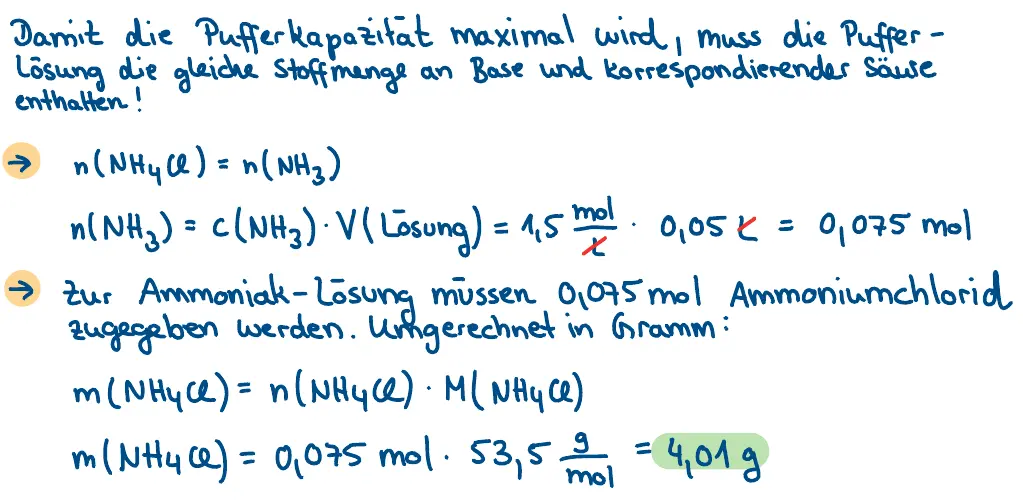 Damit die Pufferkapazität maximal wird, muss die Puffer-
Lösung die gleiche Stoffmenge an Base und korrespondierender Säure
enthalten!
→ n(NH₄Cl) = n(NH₃)
n(NH₃) = c(NH₃) · V(Lösung) = 1,5 mol/L · 0,05 L = 0,075 mol
→ Zur Ammoniak-Lösung müssen 0,075 mol Ammoniumchlorid
zugegeben werden. Umgerechnet in Gramm:
m(NH₄Cl) = n(NH₄Cl) · M(NH₄Cl)
m(NH₄Cl) = 0,075 mol · 53,5 g/mol = 4,01 g